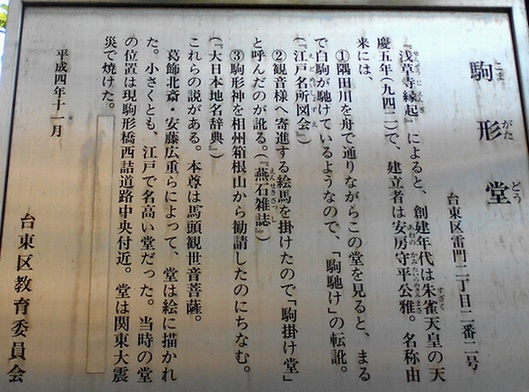 駒形堂
こま がた どう
台東区雷門二丁目二番二号
『浅草寺縁起』によると、創建年代は朱雀天皇の天
慶五年(九四二)で、建立者は安房守平公雅 名称由
来には、
①隅田川を舟で通りながらこの堂を見ると、まる
で白駒が馳けているようなので、「駒馳け」の転訛。
(『江戸名所図会』)
②観音様へ寄進する絵馬を掛けたので「駒掛け堂」
と呼んだのが訛る。(『燕石雑誌』)
③駒形神を相州箱根山から勧請したのにちなむ。
(『大日本地名辞典』)
これらの説がある。本尊は馬頭観世音菩薩。
葛飾北斎・安藤広重らによって、堂は絵に描かれ
た。小さくとも、江戸で名高い堂だった。当時の堂
の位置は現駒形橋西詰道路中央付近。堂は関東大震
災で焼けた。
平成四年十一月
台東区教育委員会